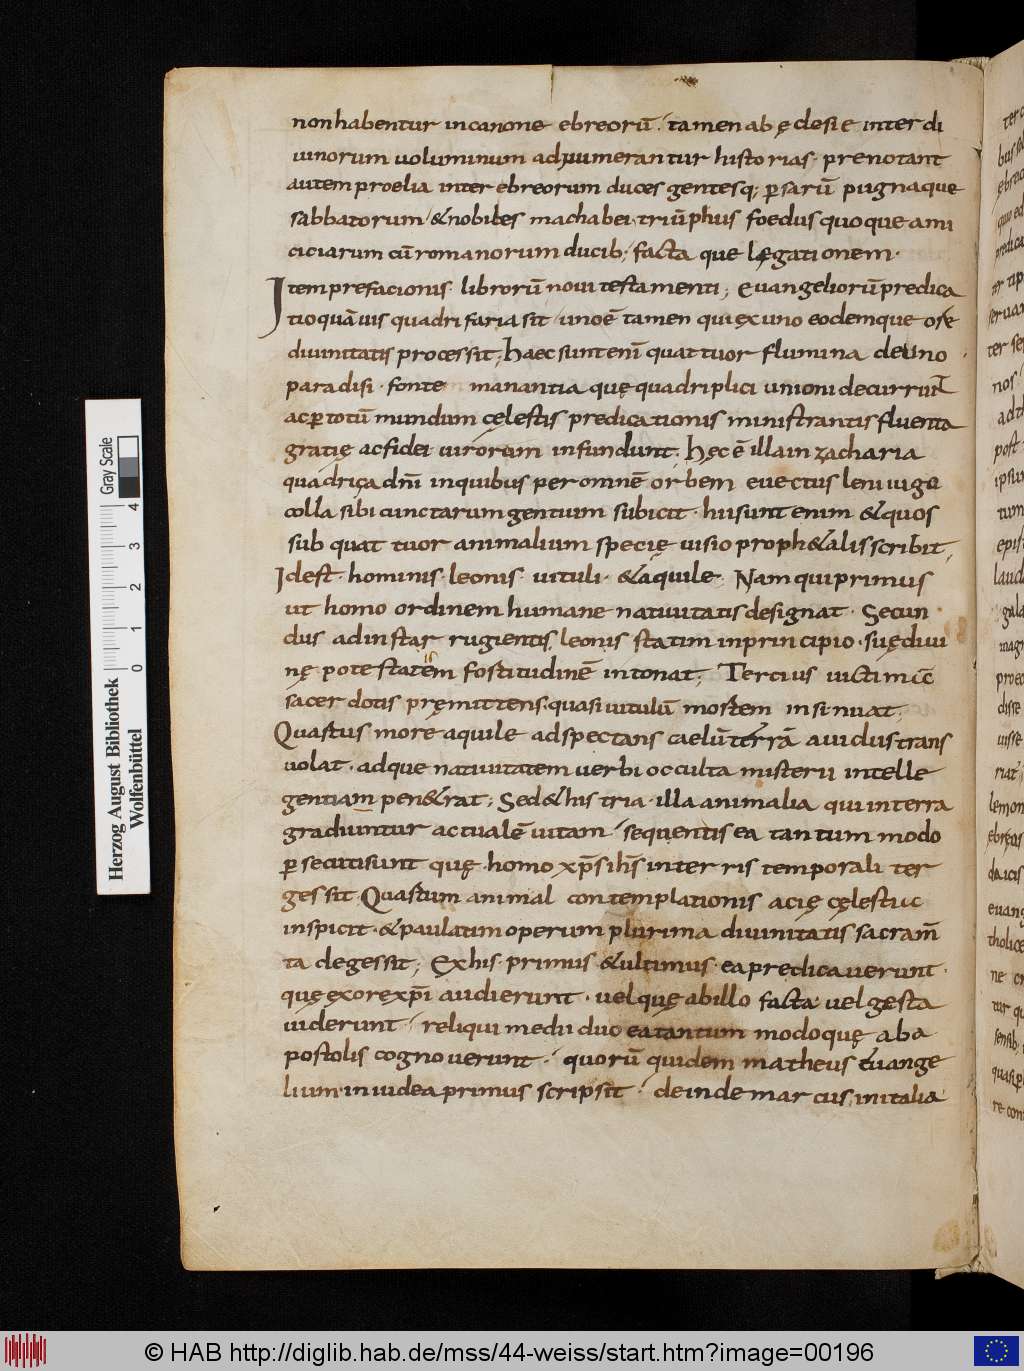 non habentur in canone ebreorū. tamen ab ęclesie inter di
uinorum uoluminum adnumerantur historias. prenotant
autem proelia inter ebreorum duces gentesq; ꝑsarū pugnaque
sabbatorum & nobiles machabei triūphus foedus quoque ami
ciciarum cū romanorum ducib; facta que lęgationem.
Item prefacionis librorū noui testamenti; Euangeliorū predica
tio quāuis quadrifaria sit unoē tamen qui ęx uno eodemque ore
diuinitatis processit; haec sunt enī quattuor flumina de uno
paradisi fonte manantia quę quadriplici unioni decurrunt
ac ꝑ totū mundum cęlestis predicationis ministrantis fluenta
gratię ac fidei uirorum infundunt. hęc ē illa in zacharia
quadriga dn̄i in quibus per omnē orbem euectus leni iuge
colla sibi cunctarum gentium subicit. hii sunt enim & quos
sub quattuor animalium specię uisio proph&alis scribit,
Idest. hominis. leonis. uituli. & aquile. Nam qui primus
ut homo ordinem humane natiuitatis designat. Secun
dus ad instar rugientis leonis statim in principio. suę diui
nę potestatem fostitudinē intonat; Tercius uictimīc
sacerdotis pręmittens. quasi uitulū mostem insinuat;
Quastus more aquile adspectans caelū terrā auidus trans
uolat. adque natiuitatem uerbi occulta misterii intelle
gentiam pen&rat; Sed & his tria illa animalia qui in terra
gradiuntur actualē uitam sequentis ea tantum modo
ꝑsecuti sunt quę homo xp̄s ih̄s in terris temporali ter
gessit. Quastum animal contemplationis acię cęlestiuc
inspicit. & paulatim operum plurima diuinitatis sacram̄
ta degessit; Ex his primus & ultimus ea predicauerunt.
quę ęx ore xp̄i audierunt. uel quę ab illo facta uel gesta
uiderunt. reliqui medii duo ea tantum modo quę ab a
postolis cognouerunt. quorū quidem matheus euange
lium in iudea primus scripsit. deinde marcus in italia
Herzog August Bibliothek
Wolfenbüttel
Gray Scale
0 1 2 3 4
© HAB http://diglib.hab.de/mss/44-weiss/start.htm?image=00196